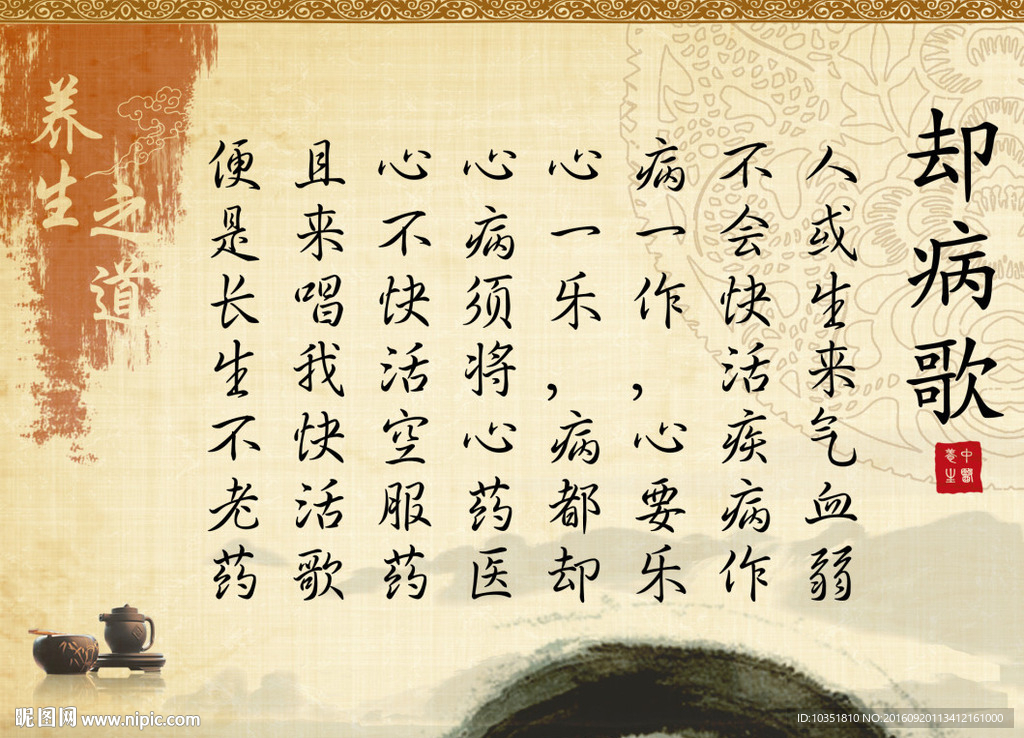 却病歌
中醫
養生
人或生来气血弱
不会快活疾病作
病一作，心要乐
心一乐，病都却
心病须将心药医
心不快活空服药
且来唱我快活歌
便是长生不老药
养生之道
昵图网 www.nipic.com
ID:10351810 NO:20160920113412161000